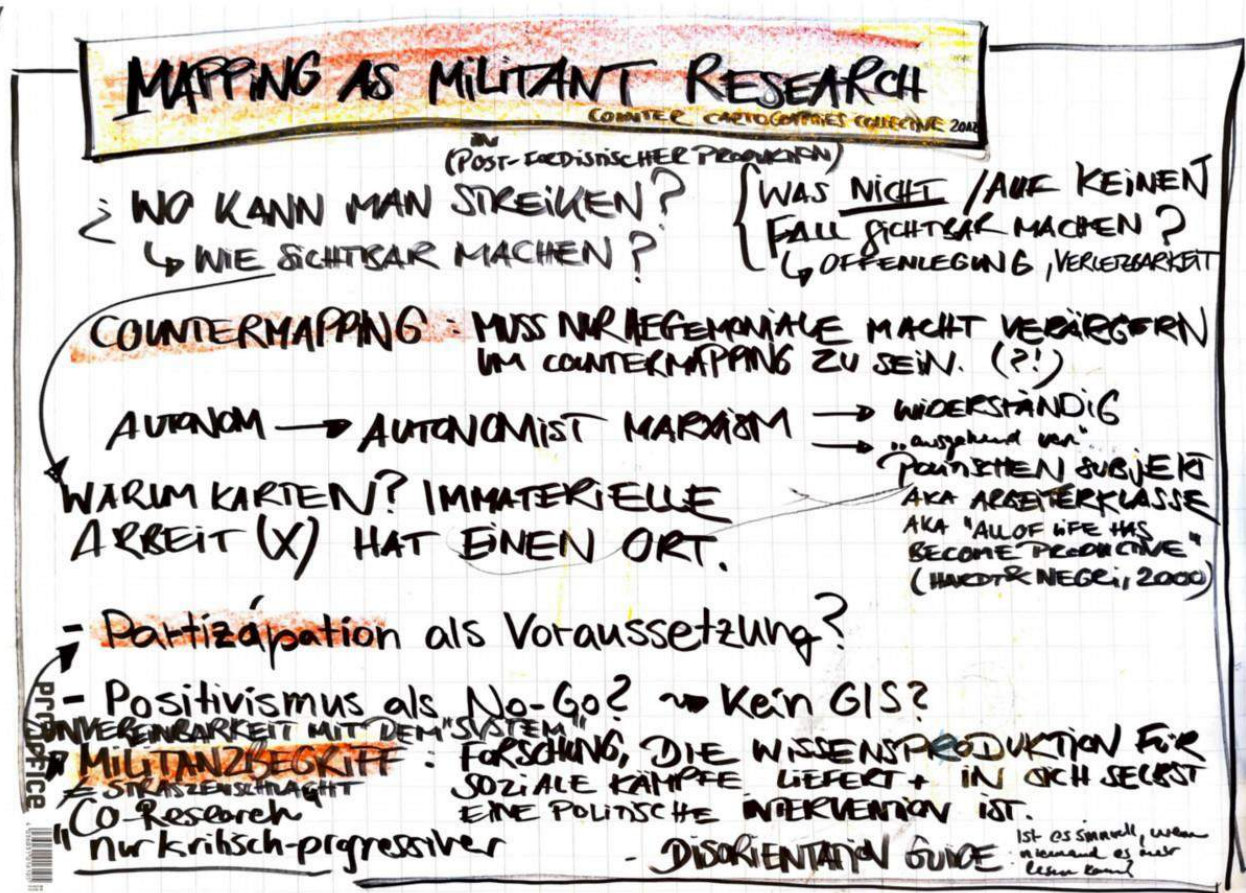 MAPPING AS MILITANT RESEARCH
COUNTER CARTOGRAPHIES COLLECTIVE 2012
in
(POST-FORDISTISCHER PRODUKTION)
¿ WO KANN MAN STREIKEN?
↳ WIE SICHTBAR MACHEN?
WAS NICHT / AUF KEINEN
FALL SICHTBAR MACHEN?
↳ OFFENLEGUNG, VERLETZBARKEIT
COUNTERMAPPING: MUSS NUR HEGEMONIALE MACHT VERÄRGERN
UM COUNTERMAPPING ZU SEIN. (?!)
AUTONOM → AUTONOMIST MARXISM → WIDERSTÄNDIG
→ "ausgehend von"
POLITISCHEN SUBJEKT
AKA ARBEITERKLASSE
AKA "ALL OF LIFE HAS
BECOME PRODUCTIVE"
(HARDT & NEGRI, 2000)
WARUM KARTEN? IMMATERIELLE
ARBEIT (X) HAT EINEN ORT.
- Partizipation als Voraussetzung?
- Positivismus als No-Go? ⇝ Kein GIS?
UNVEREINBARKEIT MIT DEM "SYSTEM"
MILITANZBEGRIFF: FORSCHUNG, DIE WISSENSPRODUKTION FÜR
SOZIALE KÄMPFE LIEFERT + IN SICH SELBST
EINE POLITISCHE INTERVENTION IST.
≠ STRASZENSCHLACHT
"Co-Research"
"nur kritisch-progressiver
- DISORIENTATION GUIDE
Ist es sinnvoll, wenn
niemand es mehr
lesen kann?
office